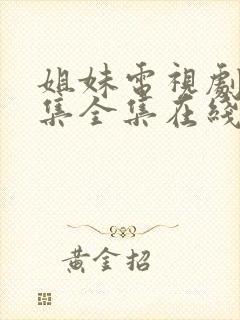 姐妹電視劇
集全集在綫
黄金招